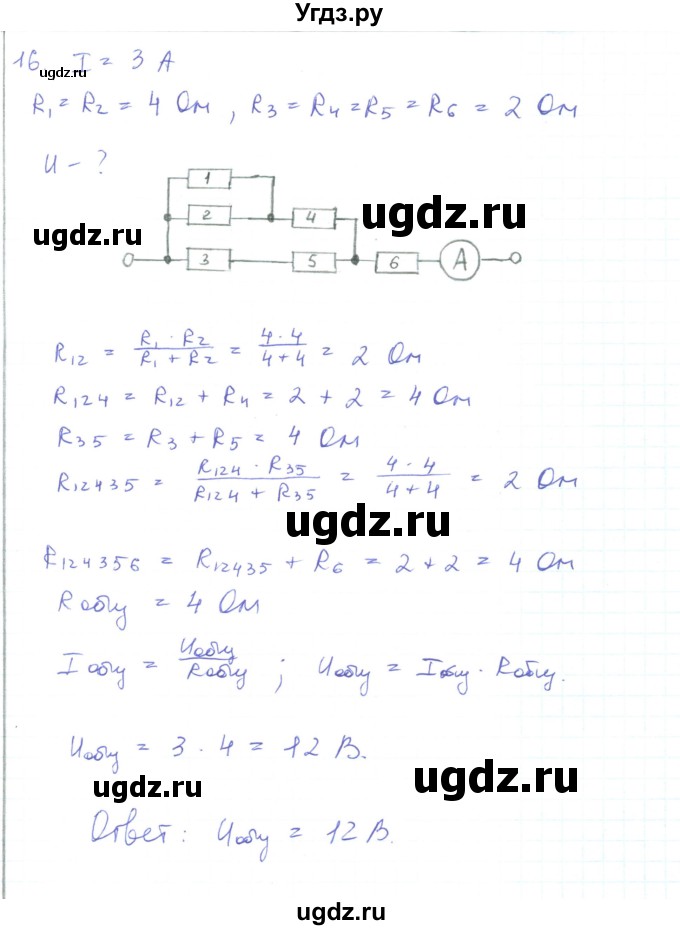 Угдз.ру
16. I = 3 А
ugdz.ru
R₁ = R₂ = 4 Ом, R₃ = R₄ = R₅ = R₆ = 2 Ом
U - ?
1
2
4
ugdz.ru
ugdz.ru
3
5
6
A
R₁₂ = (R₁ · R₂)/(R₁ + R₂) = (4 · 4)/(4 + 4) = 2 Ом
R₁₂₄ = R₁₂ + R₄ = 2 + 2 = 4 Ом
R₃₅ = R₃ + R₅ = 4 Ом
R₁₂₄₃₅ = (R₁₂₄ · R₃₅)/(R₁₂₄ + R₃₅) = (4 · 4)/(4 + 4) = 2 Ом
ugdz.ru
R₁₂₄₃₅₆ = R₁₂₄₃₅ + R₆ = 2 + 2 = 4 Ом
Rобщ = 4 Ом
Iобщ = Uобщ/Rобщ ; Uобщ = Iобщ · Rобщ.
Uобщ = 3 · 4 = 12 В.
ugdz.ru
ugdz.ru
Ответ: Uобщ = 12 В.
ugdz.ru